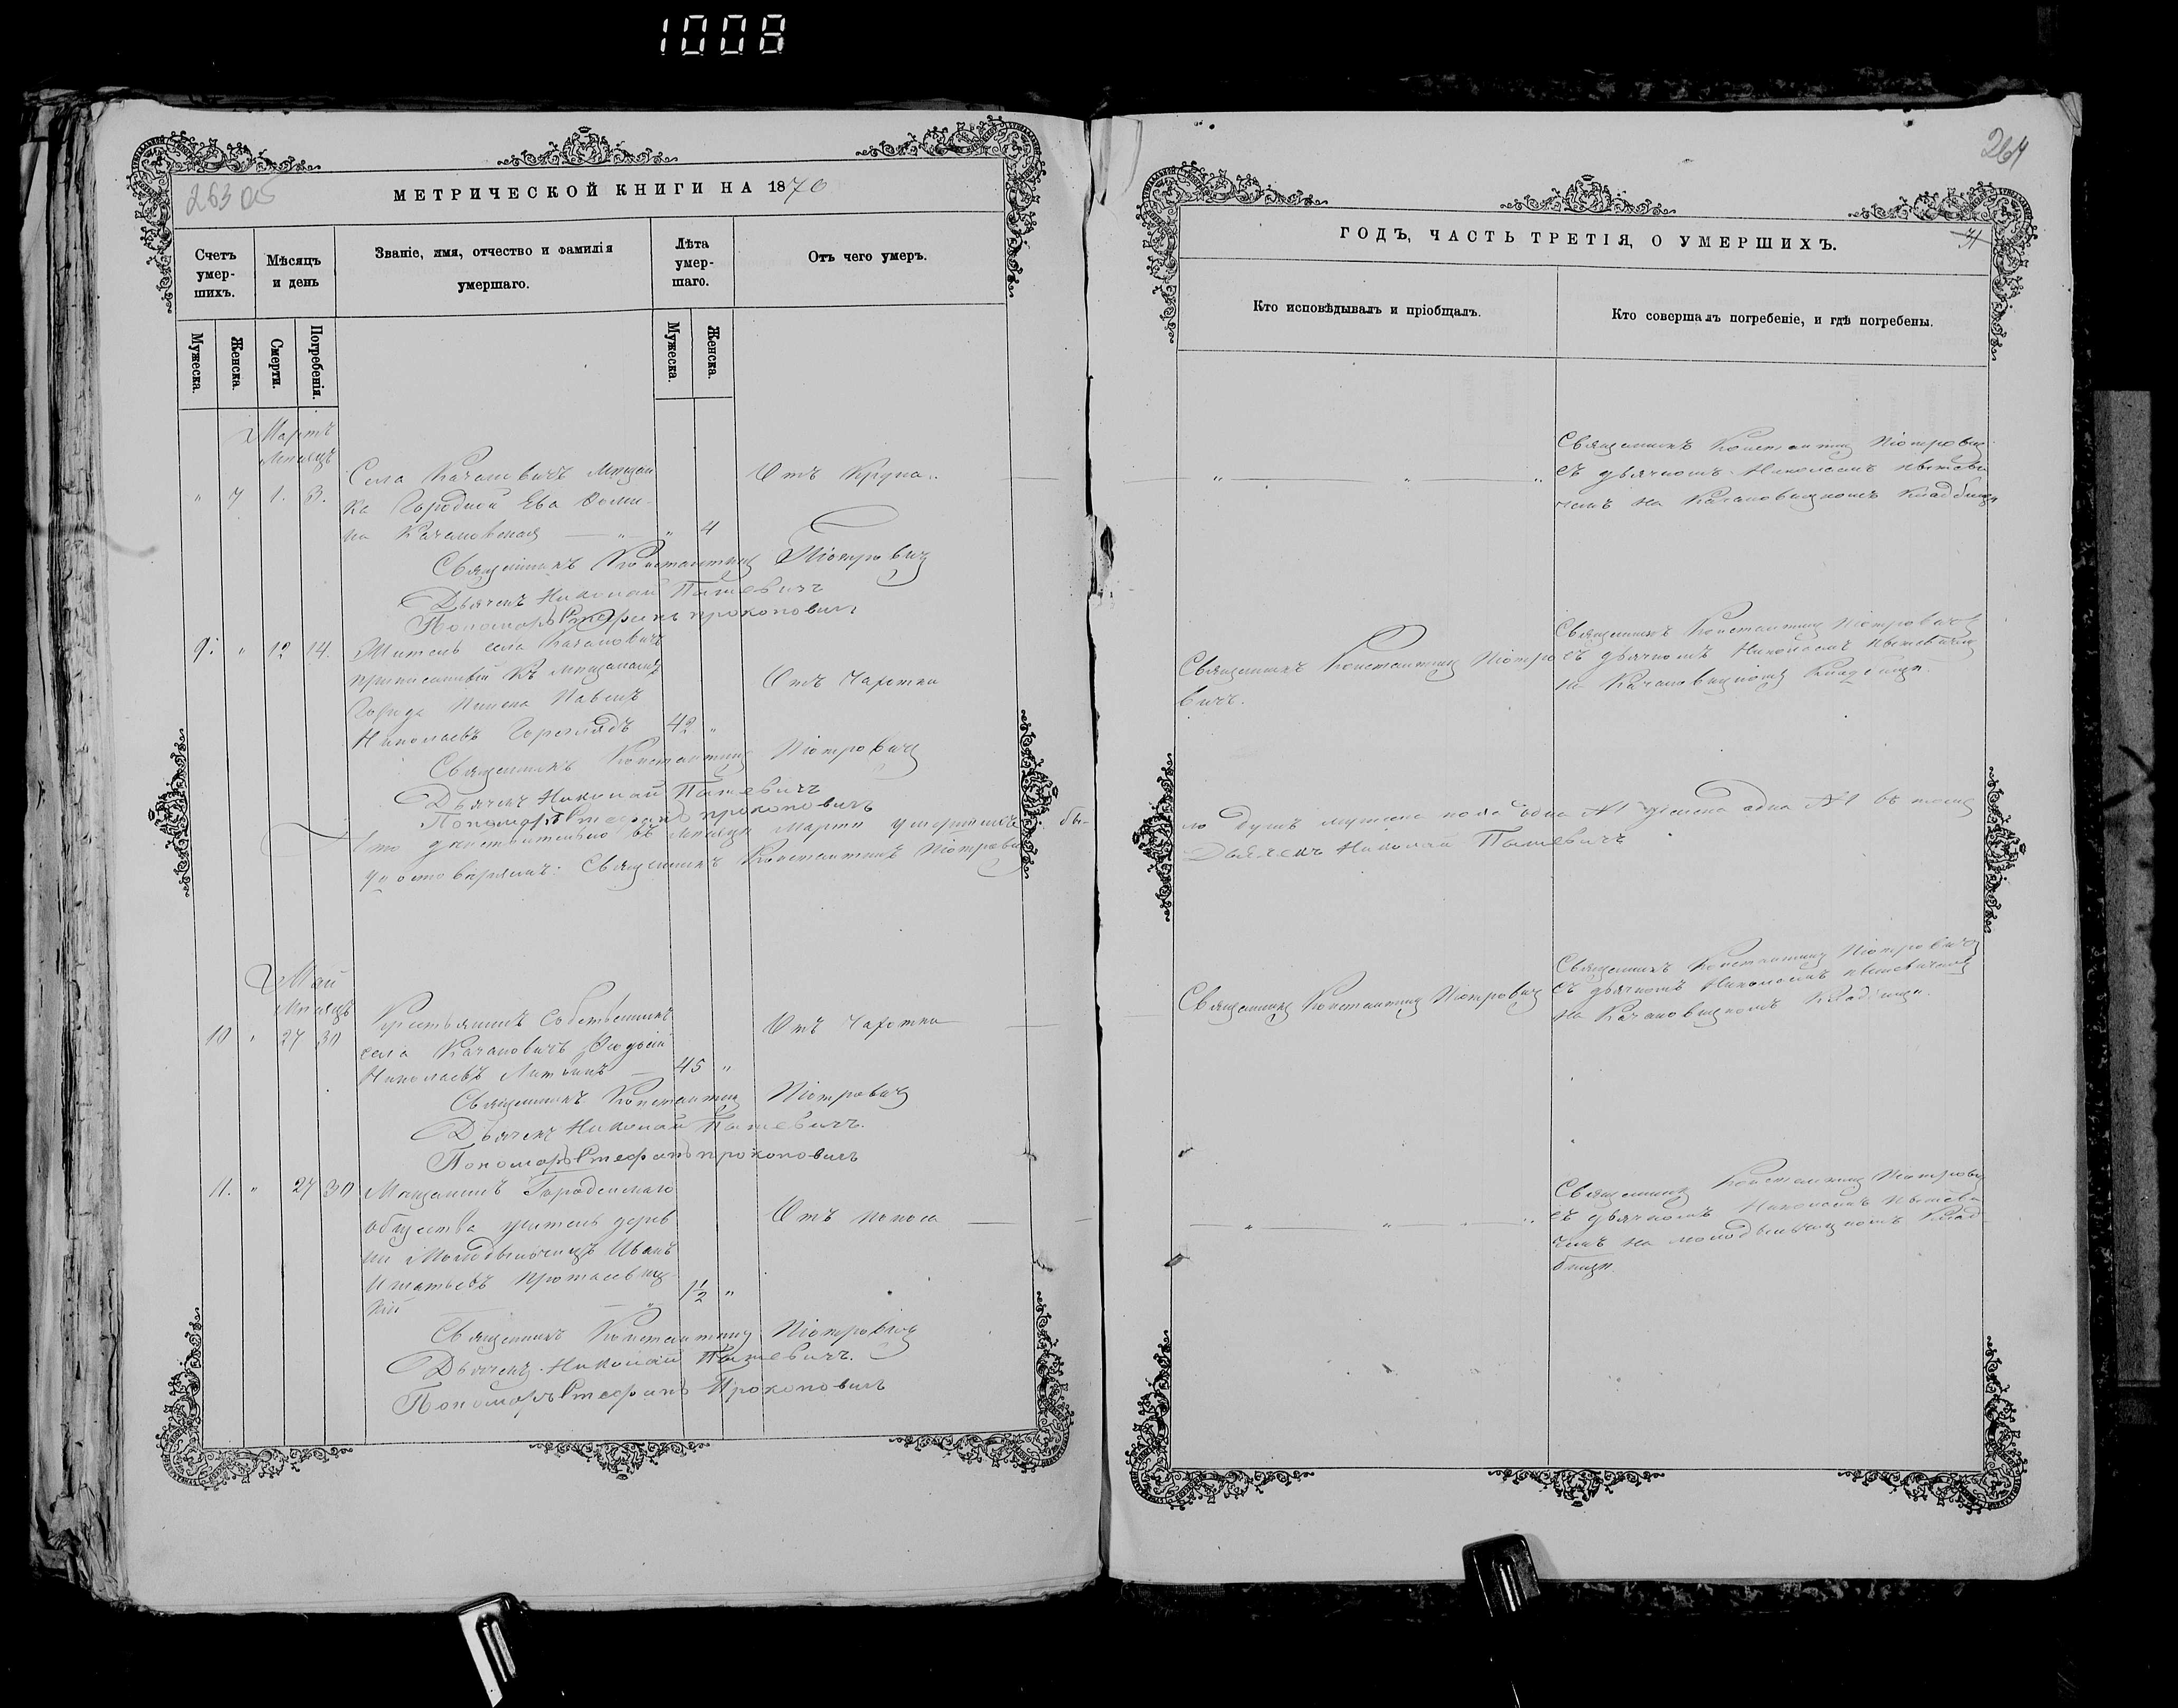 1008
263 об
МЕТРИЧЕСКОЙ КНИГИ НА 1870
Счетъ умер-шихъ.
Мѣсяцъ и день
Званіе, имя, отчество и фамилія
умершаго.
Лѣта умер-шаго.
Отъ чего умеръ.
Мужеска.
Женска.
Смерти.
Погребенія.
Мужеска.
Женска.
Мартъ
Мѣсяцъ
Села Качановичъ Мѣщан
Отъ Крупа
" 7 1. 3.
ка Городной Ева
на Качановская — " — " 4
Священникъ Константинъ Піотровичъ
Дьячекъ Николай Пашевичъ
Пономарь Стефанъ Прокоповичъ
9. " 12 14. Житель села Качановичъ
приписанный къ мѣщанамъ
Отъ Чахотки
Города Пинска Павелъ
Николаевъ 42 "
Священникъ Константинъ Піотровичъ
Дьячекъ Николай Пашевичъ
Пономарь Стефанъ Прокоповичъ
Что дѣйствительно въ мѣсяцѣ Мартѣ умершихъ бы-
удостовѣряемъ: Священникъ Константинъ Піотровичъ
Май
Мѣсяцъ
Крестьянинъ Собственникъ
10 " 27 30
села Качановичъ
Отъ Чахотки
Николаевъ 45 "
Священникъ Константинъ Піотровичъ
Дьячекъ Николай Пашевичъ.
Пономарь Стефанъ Прокоповичъ
11. " 27 30 Мѣщанинъ Городенскаго
общества житель дерев
Отъ поноса
ни Иванъ
Игнатьевъ
кій — " 1½ "
Священникъ Константинъ Піотровичъ
Дьячекъ Николай Пашевичъ.
Пономарь Стефанъ Прокоповичъ
264
ГОДЪ, ЧАСТЬ ТРЕТІЯ, О УМЕРШИХЪ.
71
Кто исповѣдывалъ и пріобщалъ.
Кто совершалъ погребеніе, и гдѣ погребены.
Священникъ Константинъ Піотровичъ
съ дьячкомъ Николаемъ Пашеви
чемъ на Качановицкомъ Кладбищѣ
Священникъ Константинъ Піотро
вичъ.
Священникъ Константинъ Піотровичъ
съ дьячкомъ Николаемъ Пашевичемъ
на Качановицкомъ Кладбищѣ.
ло Душъ мужеска пола одна №1 женска одна №1 въ томъ
Дьячекъ Николай Пашевичъ
Священникъ Константинъ Піотровичъ
Священникъ Константинъ Піотровичъ
съ дьячкомъ Николаемъ Пашевичемъ
на Качановицкомъ Кладбищѣ.
Священникъ Константинъ Піотровичъ
съ дьячкомъ Николаемъ Пашеви
чемъ на Клад
бищѣ.